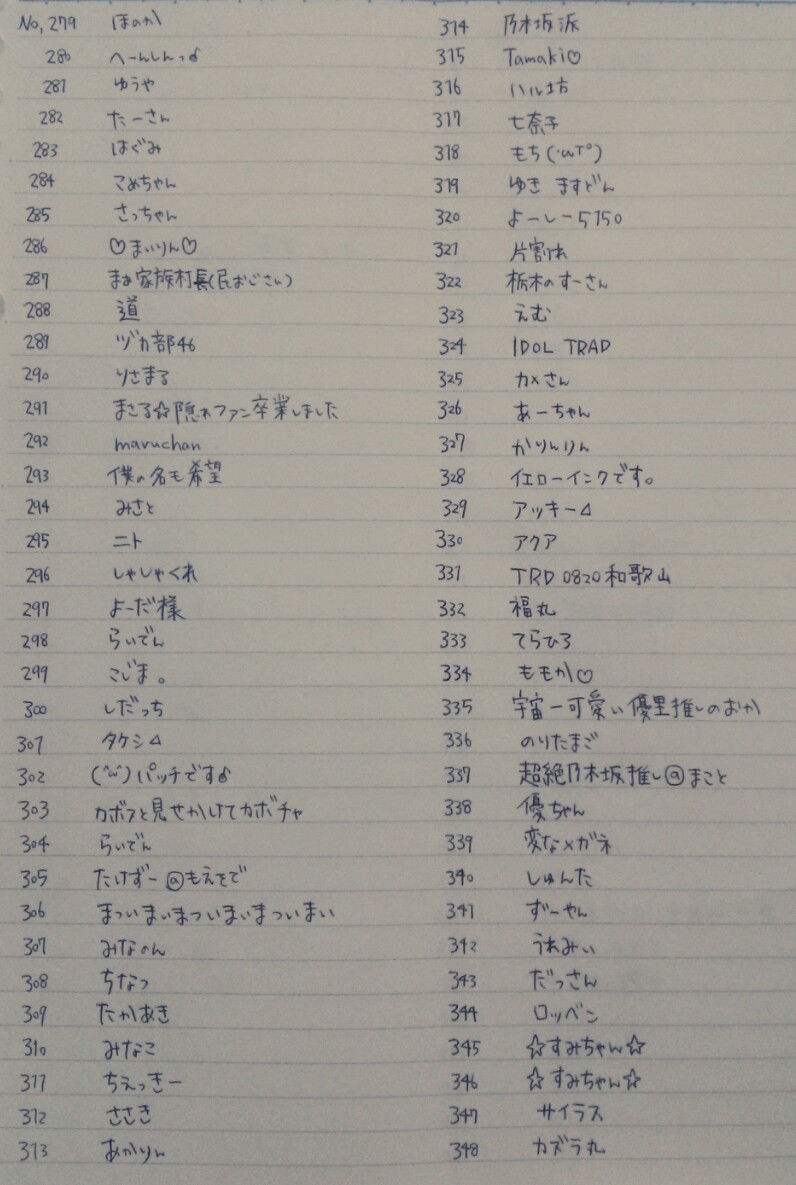 No,279 ほのか
280 へーんしんっ♂
281 ゆうや
282 たーさん
283 はぐみ
284 こめちゃん
285 さっちゃん
286 ♡まいりん♡
287 まぁ家族村長(民おじさい)
288 道
289 ヅカ部46
290 りさまる
291 まさる☆隠れファン卒業しました
292 maruchan
293 僕の名も希望
294 みさと
295 ニト
296 しゃしゃくれ
297 よーだ様
298 らいでん
299 こじま。
300 しだっち
301 タケシ⊿
302 (^ω^)パッチです♪
303 カボスと見せかけてカボチャ
304 らいでん
305 たけずー@もえをで
306 まついまいまついまいまついまい
307 みなのん
308 ちなつ
309 たかあき
310 みなこ
311 ちえっきー
312 ささき
313 あかりん
314 乃木坂派
315 Tamaki♡
316 ハル坊
317 七奈子
318 もち
319 ゆき ますどん
320 よーしー5150
321 片割れ
322 栃木のすーさん
323 えむ
324 IDOL TRAD
325 カメさん
326 あーちゃん
327 かりんりん
328 イエローインクです。
329 アッキー⊿
330 アクア
331 TRD 0820和歌山
332 福丸
333 てらひろ
334 ももか♡
335 宇宙一可愛い優里推しのおか
336 のりたまご
337 超絶乃木坂推し@まこと
338 優ちゃん
339 変なメガネ
340 しゅんた
341 ずーやん
342 うれみぃ
343 だっさん
344 ロッベン
345 ☆すみちゃん☆
346 ☆すみちゃん☆
347 サイラス
348 カズラ丸